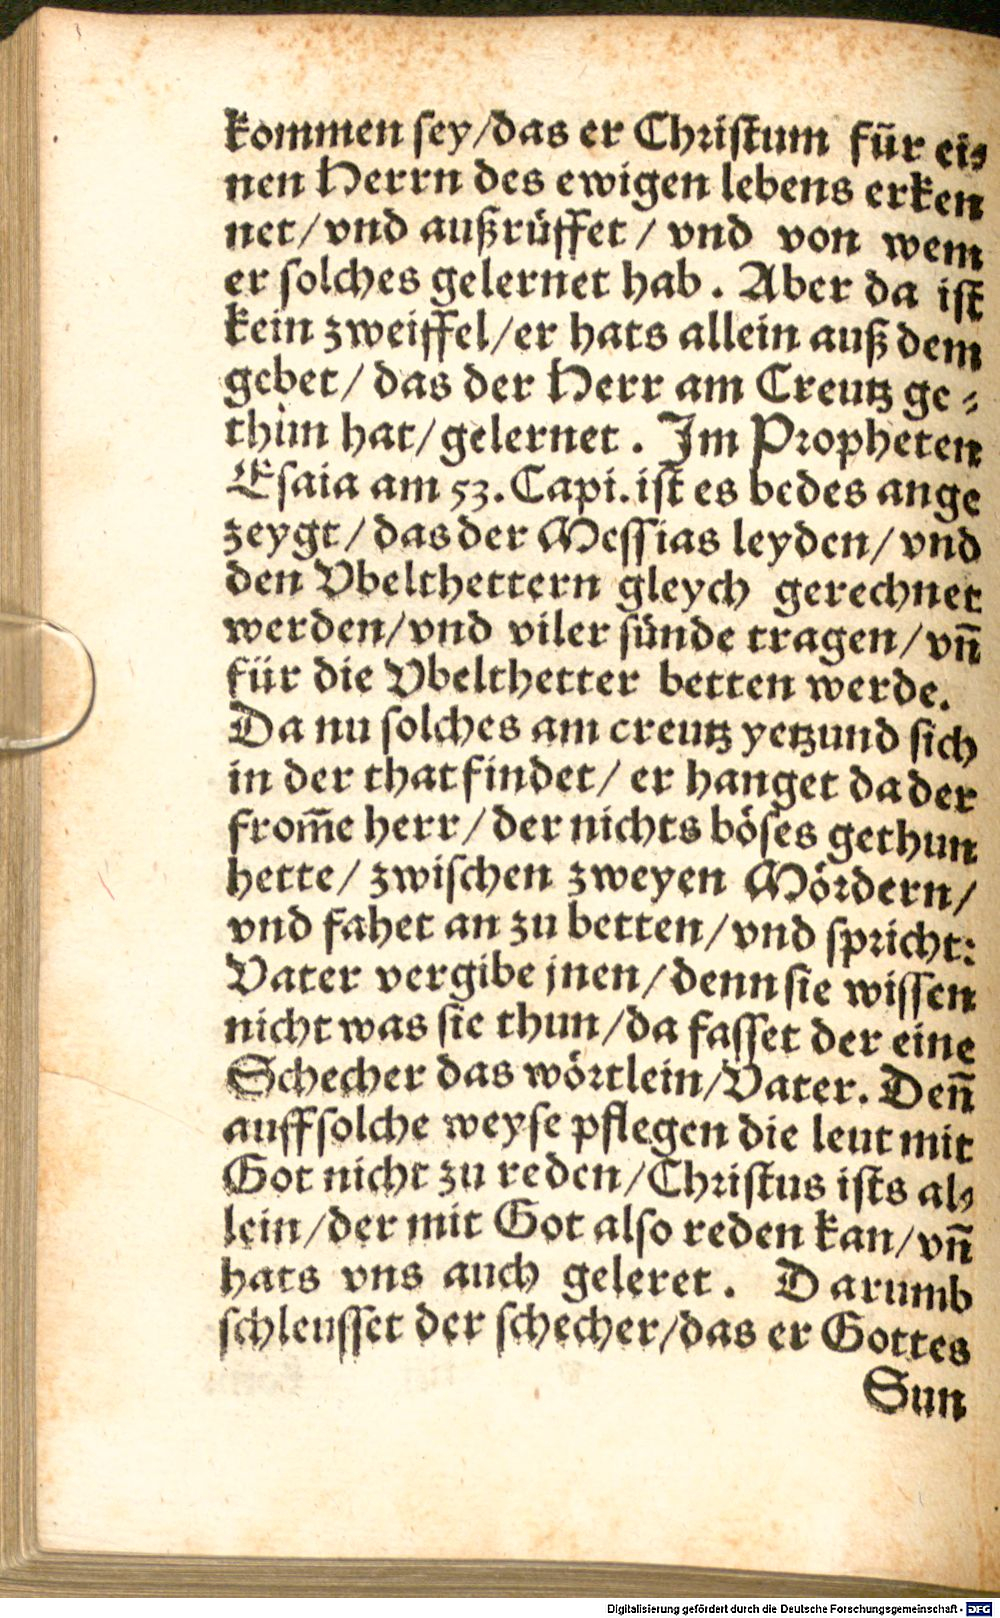 kommen ſey/das er Chriſtum für ei⸗
nen Herrn des ewigen lebens erken
net/vnd außrüffet / vnd von wem
er ſolches gelernet hab. Aber da iſt
kein zweiffel/er hats allein auß dem
gebet/ das der Herr am Creutz ge⸗
thun hat/gelernet. Im Propheten
Eſaia am 53. Capi. iſt es bedes ange
zeygt/ das der Meſſias leyden/ vnd
den Vbelthettern gleych gerechnet
werden/vnd viler ſünde tragen/ vñ
für die Vbelthetter betten werde.
Da nu ſolches am creutz yetzund ſich
in der that findet/ er hanget da der
from̄e herr/ der nichts böſes gethun
hette/ zwiſchen zweyen Mördern/
vnd fahet an zu betten/vnd ſpricht:
Vater vergibe jnen/denn ſie wiſſen
nicht was ſie thun/da faſſet der eine
Schecher das wörtlein/Vater. Deñ
auff ſolche weyſe pflegen die leut mit
Got nicht zu reden/Chriſtus iſts al⸗
lein/der mit Got alſo reden kan/vñ
hats vns auch geleret. Darumb
ſchleuſſet der ſchecher/das er Gottes
Sun
Digitalisierung gefördert durch die Deutsche Forschungsgemeinschaft - DFG